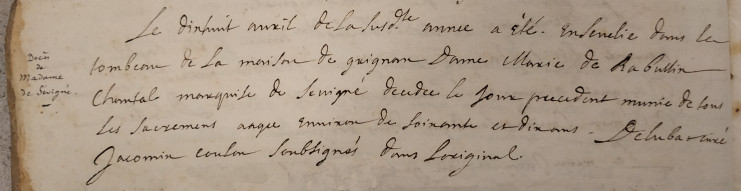 Le dixhuit avril de la susd.te annee a été. Ensevelie dans le
tombeau de la maison de grignan Dame Marie de Rabuttin
Chantal marquise de Sevigné decedee le jour precedent munie de tous
les sacremens agee environ de soixante et dix ans -
Jacomin coulon soubsignés dans loriginal.
Decès
de
Madame
de Sevigné.